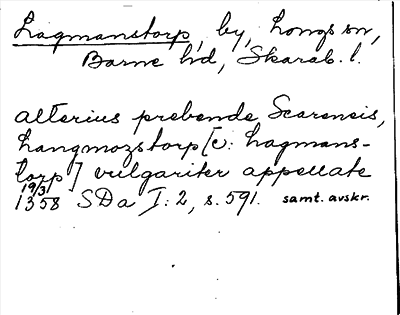 Lagmanstorp, by, Longs sn,
Barne hd, Skarab. l.
alterius prebende Scarensis,
Langmozstorp [ɔ: Lagmans-
torp] vulgariter appellate
19/3 1358 SDa I: 2, s. 591. samt. avskr.